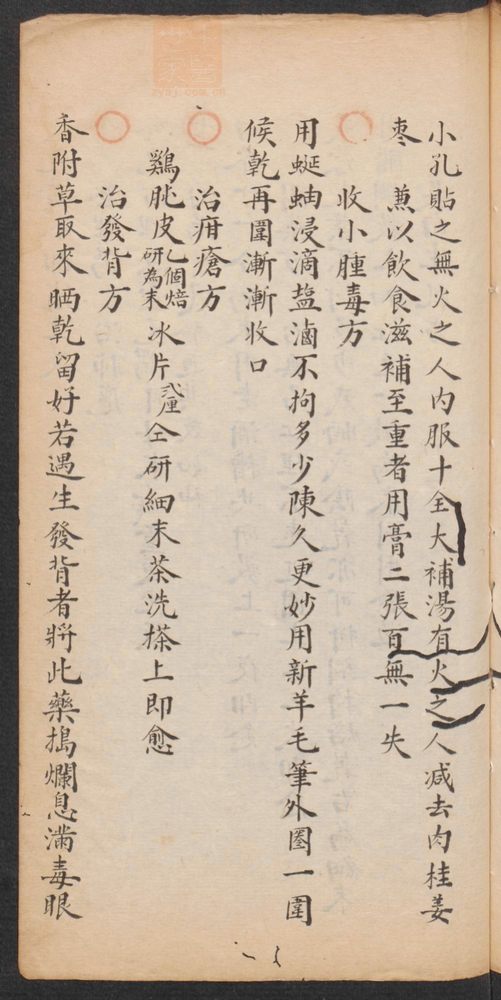 小孔貼之無火之人内服十全大補湯有火之人减去肉桂姜
枣蒸以飲食滋補至重者用膏二張百無一失
收小腫毒方
用蜒蚰浸滴盐滷不拘多少陳久更妙用新羊毛筆外圈一圍
候乾再圍漸漸收口
治疳瘡方
鷄肶皮乙個焙研為末冰片弍厘仝研細末茶洗搽上即愈
治發背方
香附草取來晒乾留好若遇生發背者將此藥搗爛息滿毒眼